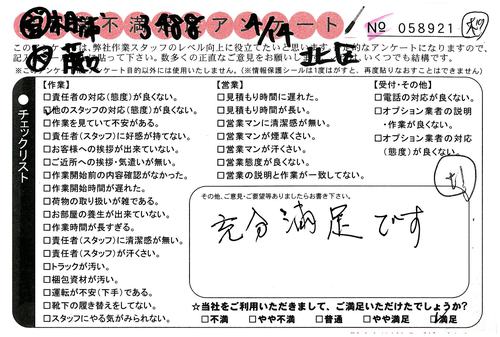 不満足アンケート 3488 4/14 正区 No 058921
このアンケートは、弊社作業スタッフのレベル向上に役立てたいと思います。
※このアンケート目的以外には使用いたしません。(※情報保護シールは1度はがすと、再度貼りなおすことができません)
チェックリスト
【作業】
□責任者の対応(態度)が良くない。
□他のスタッフの対応(態度)が良くない。
□作業を見ていて不安がある。
□責任者(スタッフ)に好感が持てない。
□お客様への挨拶が出来ていない。
□ご近所への挨拶・気遣いが無い。
□作業開始前の内容確認がなかった。
□作業開始時間が遅れた。
□荷物の取り扱いが雑である。
□お部屋の養生が出来ていない。
□作業時間が長すぎる。
□責任者(スタッフ)に清潔感が無い。
□責任者(スタッフ)が汗くさい。
□トラックが汚い。
□梱包資材が汚い。
□運転が不安(下手)である。
□靴下の履き替えをしてない。
□スタッフにやる気がみられない。
【営業】
□見積もり時間に遅れた。
□見積もり時間が長い。
□営業マンに清潔感が無い。
□営業マンが煙草くさい。
□営業マンが汗くさい。
□営業態度が良くない。
□営業の説明と作業が一致してない。
【受付・その他】
□電話の対応が良くない。
□オプション業者の説明
・作業が良くない。
□オプション業者の対応
(態度)が良くない。
その他、ご意見・ご要望等ありましたらお書き下さい。
充分満足です
☆当社をご利用いただきまして、ご満足いただけたでしょうか?
□不満 □やや不満 □普通 □やや満足 □満足